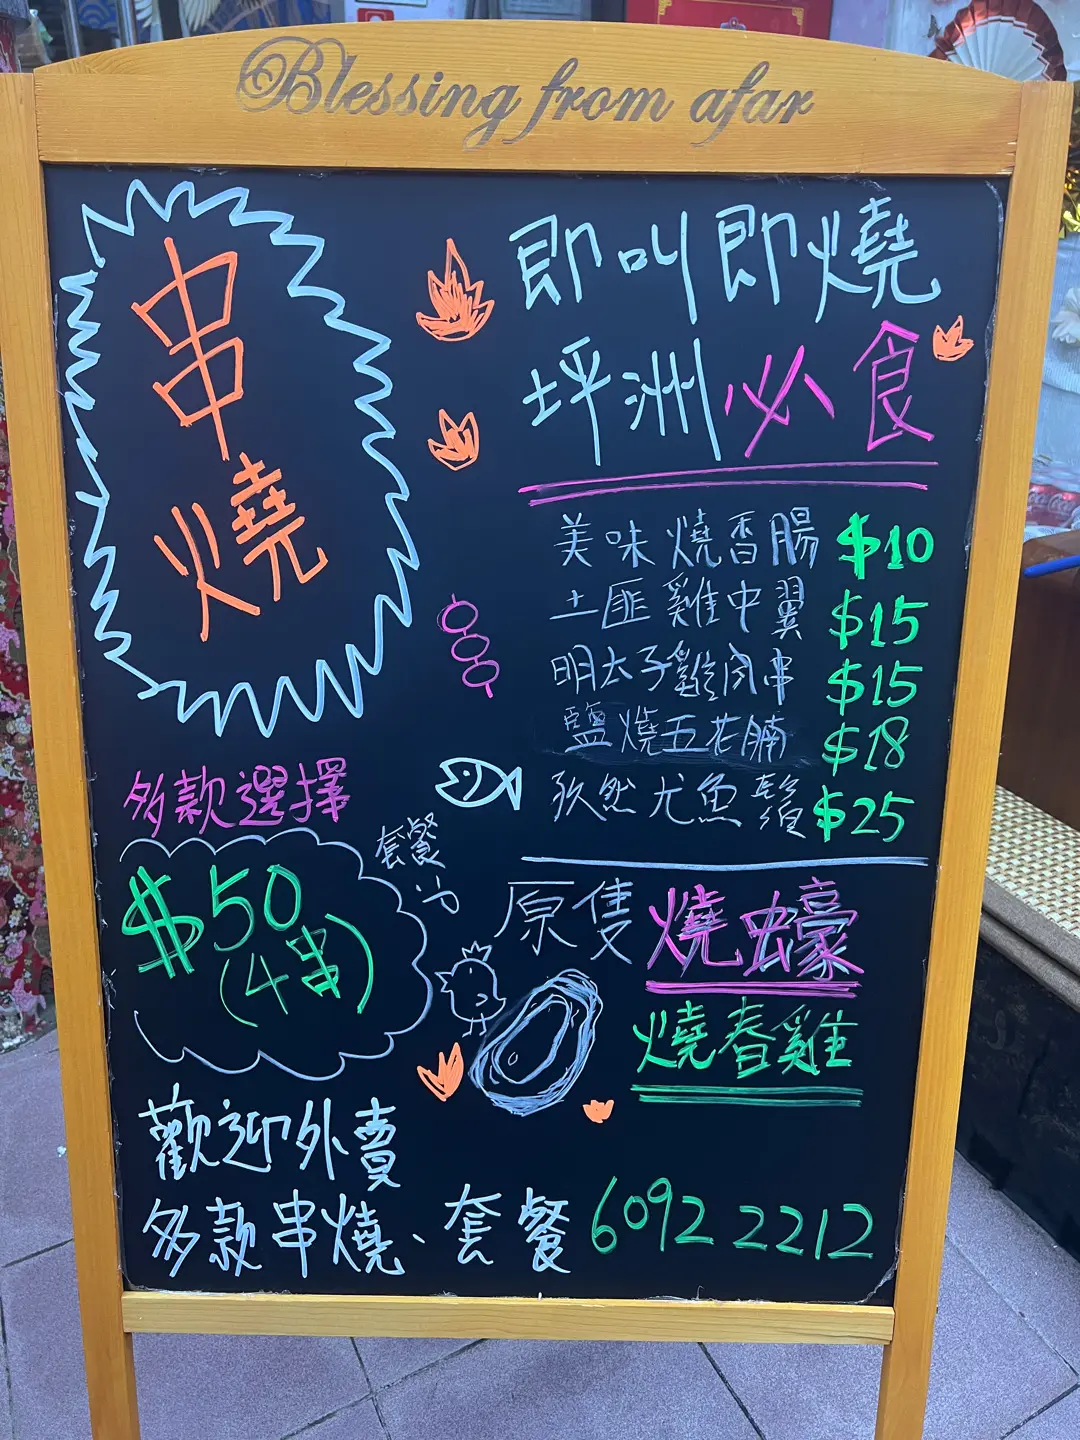 Blessing from afar
串燒
即叫即燒
坪洲必食
美味燒香腸 $10
土匪雞中翼 $15
明太子雞肉串 $15
鹽燒五花腩 $18
孜然尤魚鬚 $25
多款選擇
套餐
$50
(4串)
原隻燒蠔
燒春雞
歡迎外賣
多款串燒、套餐 6092 2212